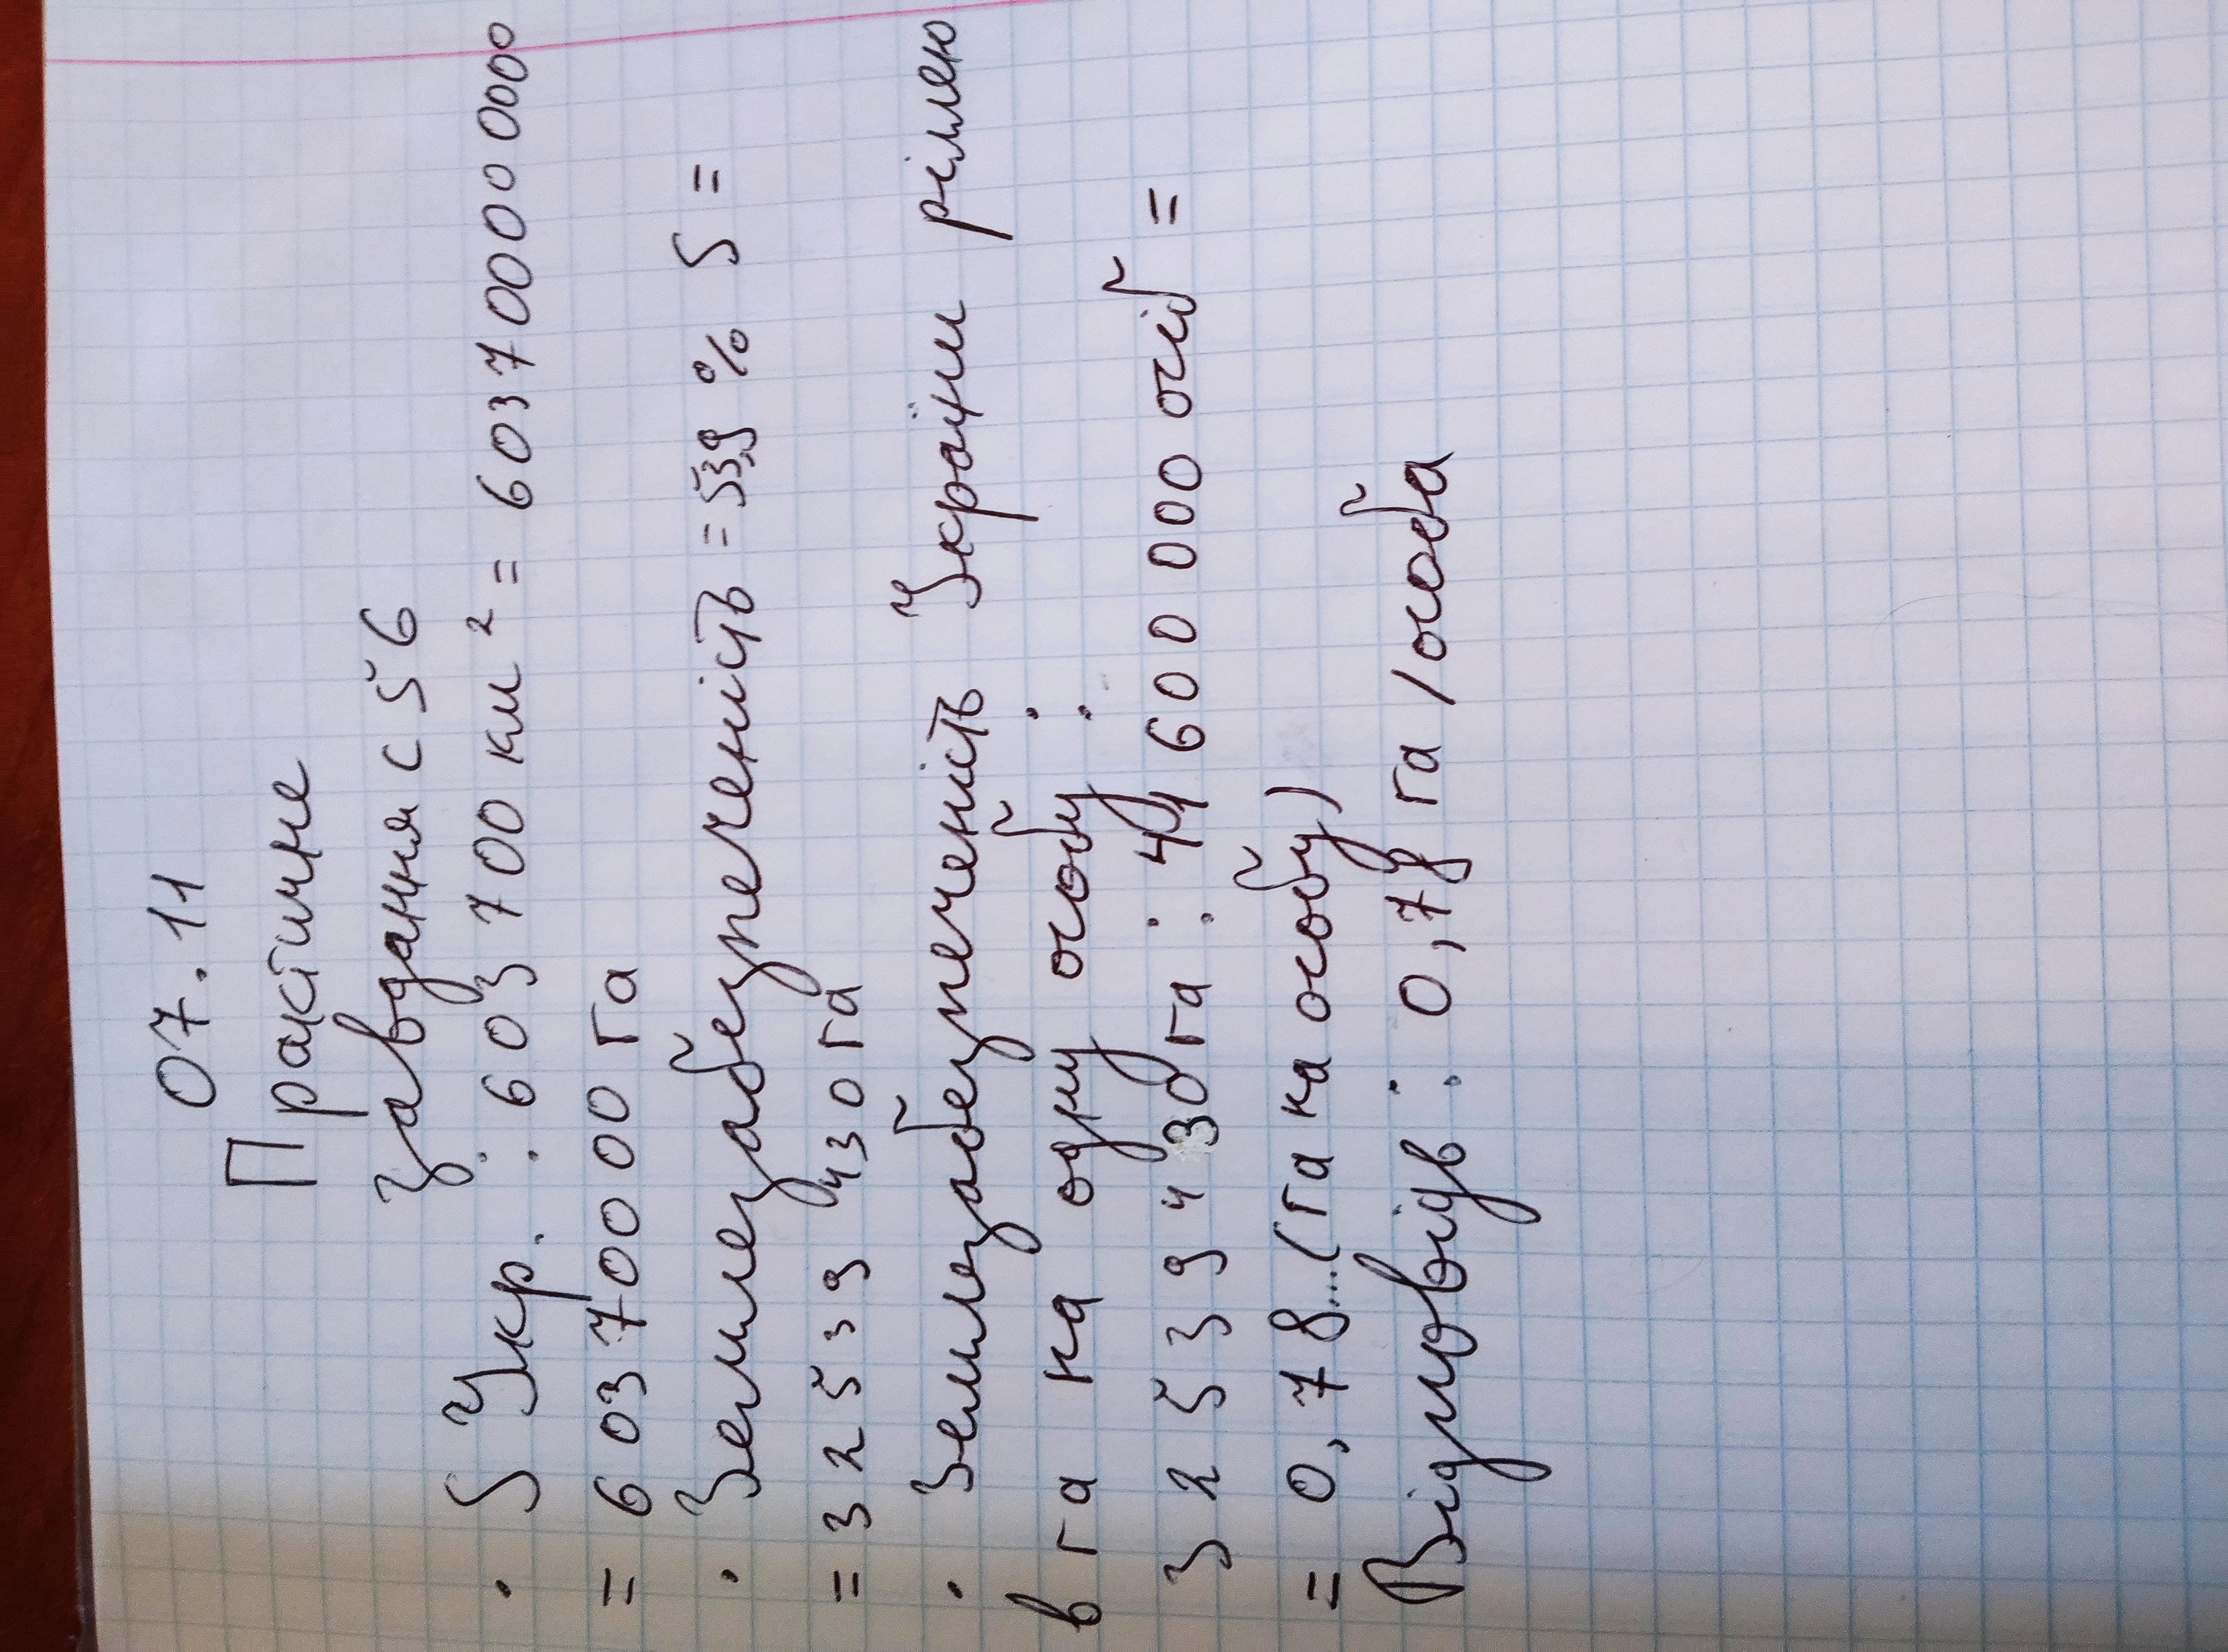 07.11
Практичне
завдання с 56
· S Укр. : 603 700 км² = 603700000000
= 60370000 га
· Землезабезпеченість = 53,9 % S =
= 32539 430 га
· Землезабезпеченість України рілею
в га на одну особу :
32539430 га : 41 600 000 осіб =
= 0,78...(га на особу)
Відповідь : 0,78 га/особа